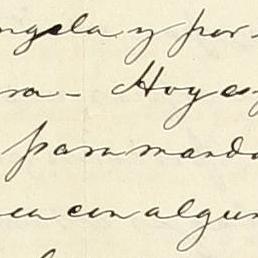 ngela y por
ra - Hoy es
para manda
ea con algun